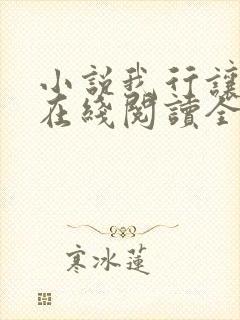 小説我行讓
在綫閱讀全
寒冰蓮